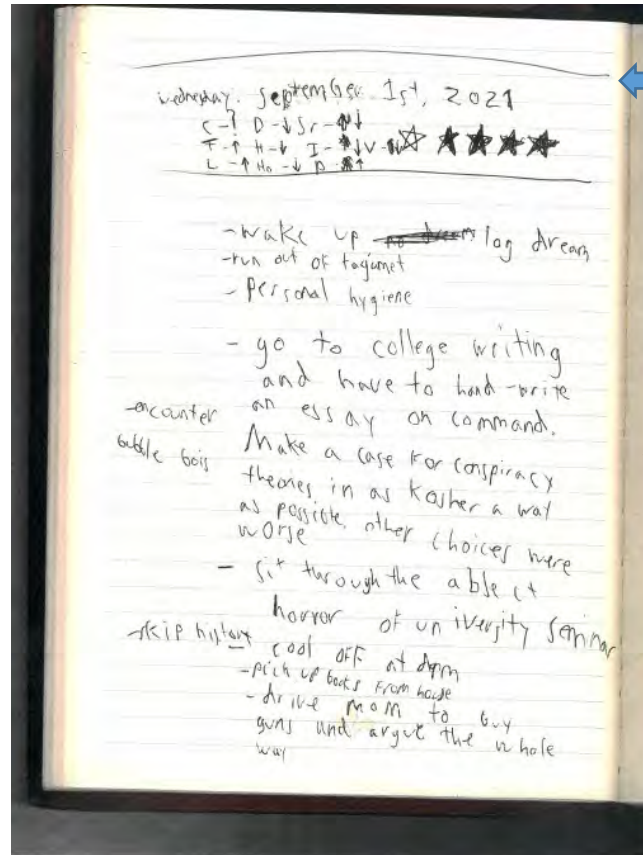 wednesday. September 1st, 2021
C-? D-↓ Sr-↓
F-↑ H-↓ I-↓ V-
L-↑ Ho-↓ P-↑
-wake up log dream
-run out of tagamet
- personal hygiene
- go to college writing
and have to hand-write
an essay on command.
-encounter
bubble bois
Make a case for conspiracy
theories in as kosher a way
as possible. other choices were
worse
- sit through the
horror of university seminar
-skip history
cool off at dorm
-pick up books from house
-drive mom to buy
guns and argue the whole
way